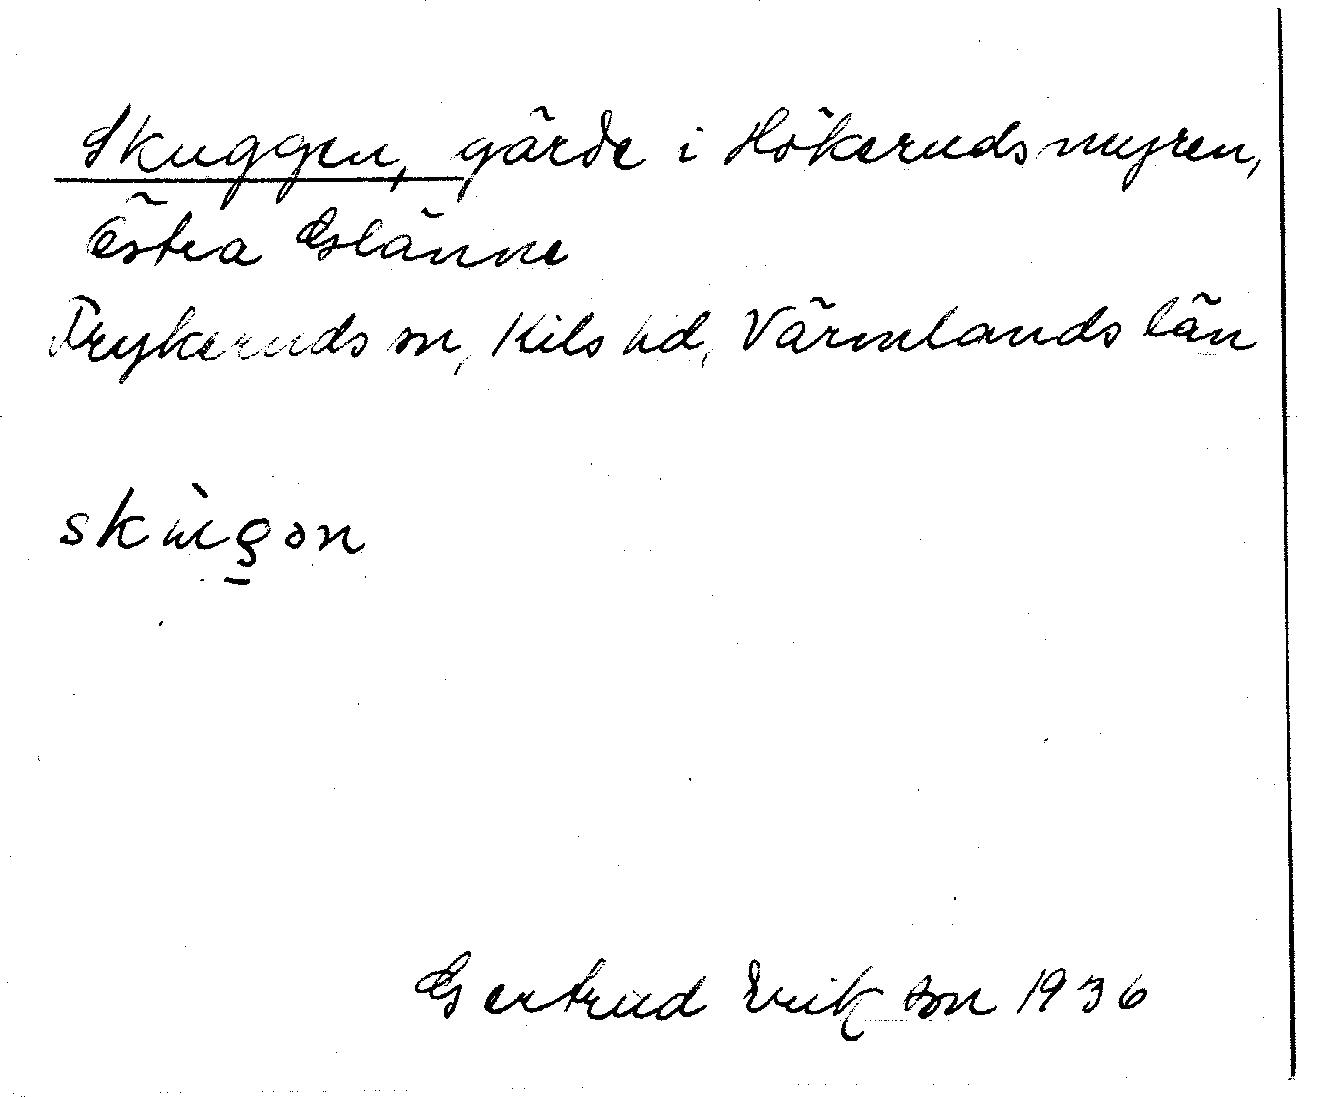 Skuggen, gärde i Hökerudsmyren,
Östra Glänne
Frykeruds sn, Kils hd, Värmlands län
skùg̱ən
Gertrud Erikson 1936